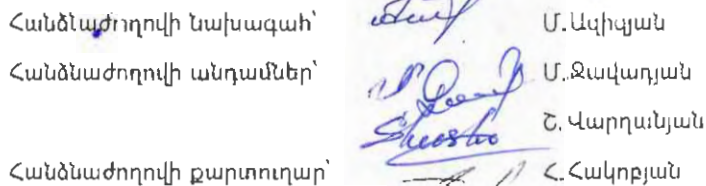 Հանձնաժողովի նախագահ՝ Մ.Ազիզյան
Հանձնաժողովի անդամներ՝ Մ.Ջավադյան
Շ.Վարդանյան
Հանձնաժողովի քարտուղար՝ Հ.Հակոբյան